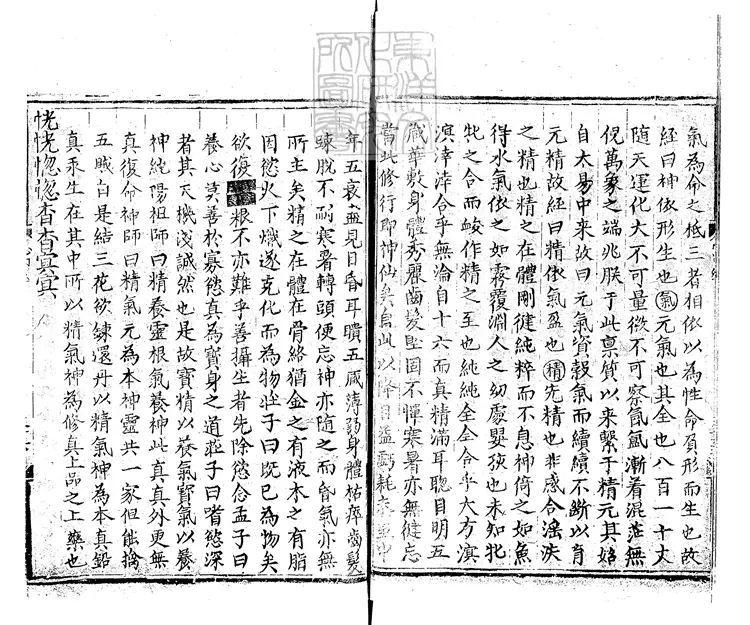 氣為命之柢三者相依以為性命負形而生也故
經曰神依形生也氣元氣也其全也八百一十丈
隨天運化大不可量微不可察氤氳漸着混茫無
倪萬象之端兆朕于此禀質以來繋于精元其始
自太易中來故曰元氣資穀氣而續續不斷以育
元精故經曰精依氣盈也精先精也非感合滛泆
之精也精之在體剛健純粹而不息神倚之如魚
得水氣依之如霧覆淵人之幼處嬰孩也未知牝
牝之合而峻作精之至也純純全全合乎大方溟
溟涬涬合乎無淪自十六而真精滿耳聦目明五
臟華敷身體秀麗齒髮堅固不憚寒暑亦無健忘
當此修行即神仙矣烏此以降日益虧耗
年五衰益見目昏耳聵五臟薄弱身體枯瘁齒髮
竦脫不耐寒暑轉頭便忘神亦隨之而昏氣亦無
所主矣精之在體在骨絡猶金之有液木之有脂
因慾火下熾遂克化而為物莊子曰既已為物矣
欲復根不亦難乎善攝生者先除慾念孟子曰
養心莫善於寡慾真為寶身之道莊子曰嗜慾深
者其天機淺誠然也是故寶精以養氣寶氣以養
神純陽祖師曰精養靈根氣養神此真真外更無
真復命神師曰精氣元為本神靈共一家但能擒
五賊自是結三花欲鍊還丹以精氣神為本真鉛
真汞生在其中所以精氣神為修真上品之上藥也
恍恍惚惚杳杳冥冥